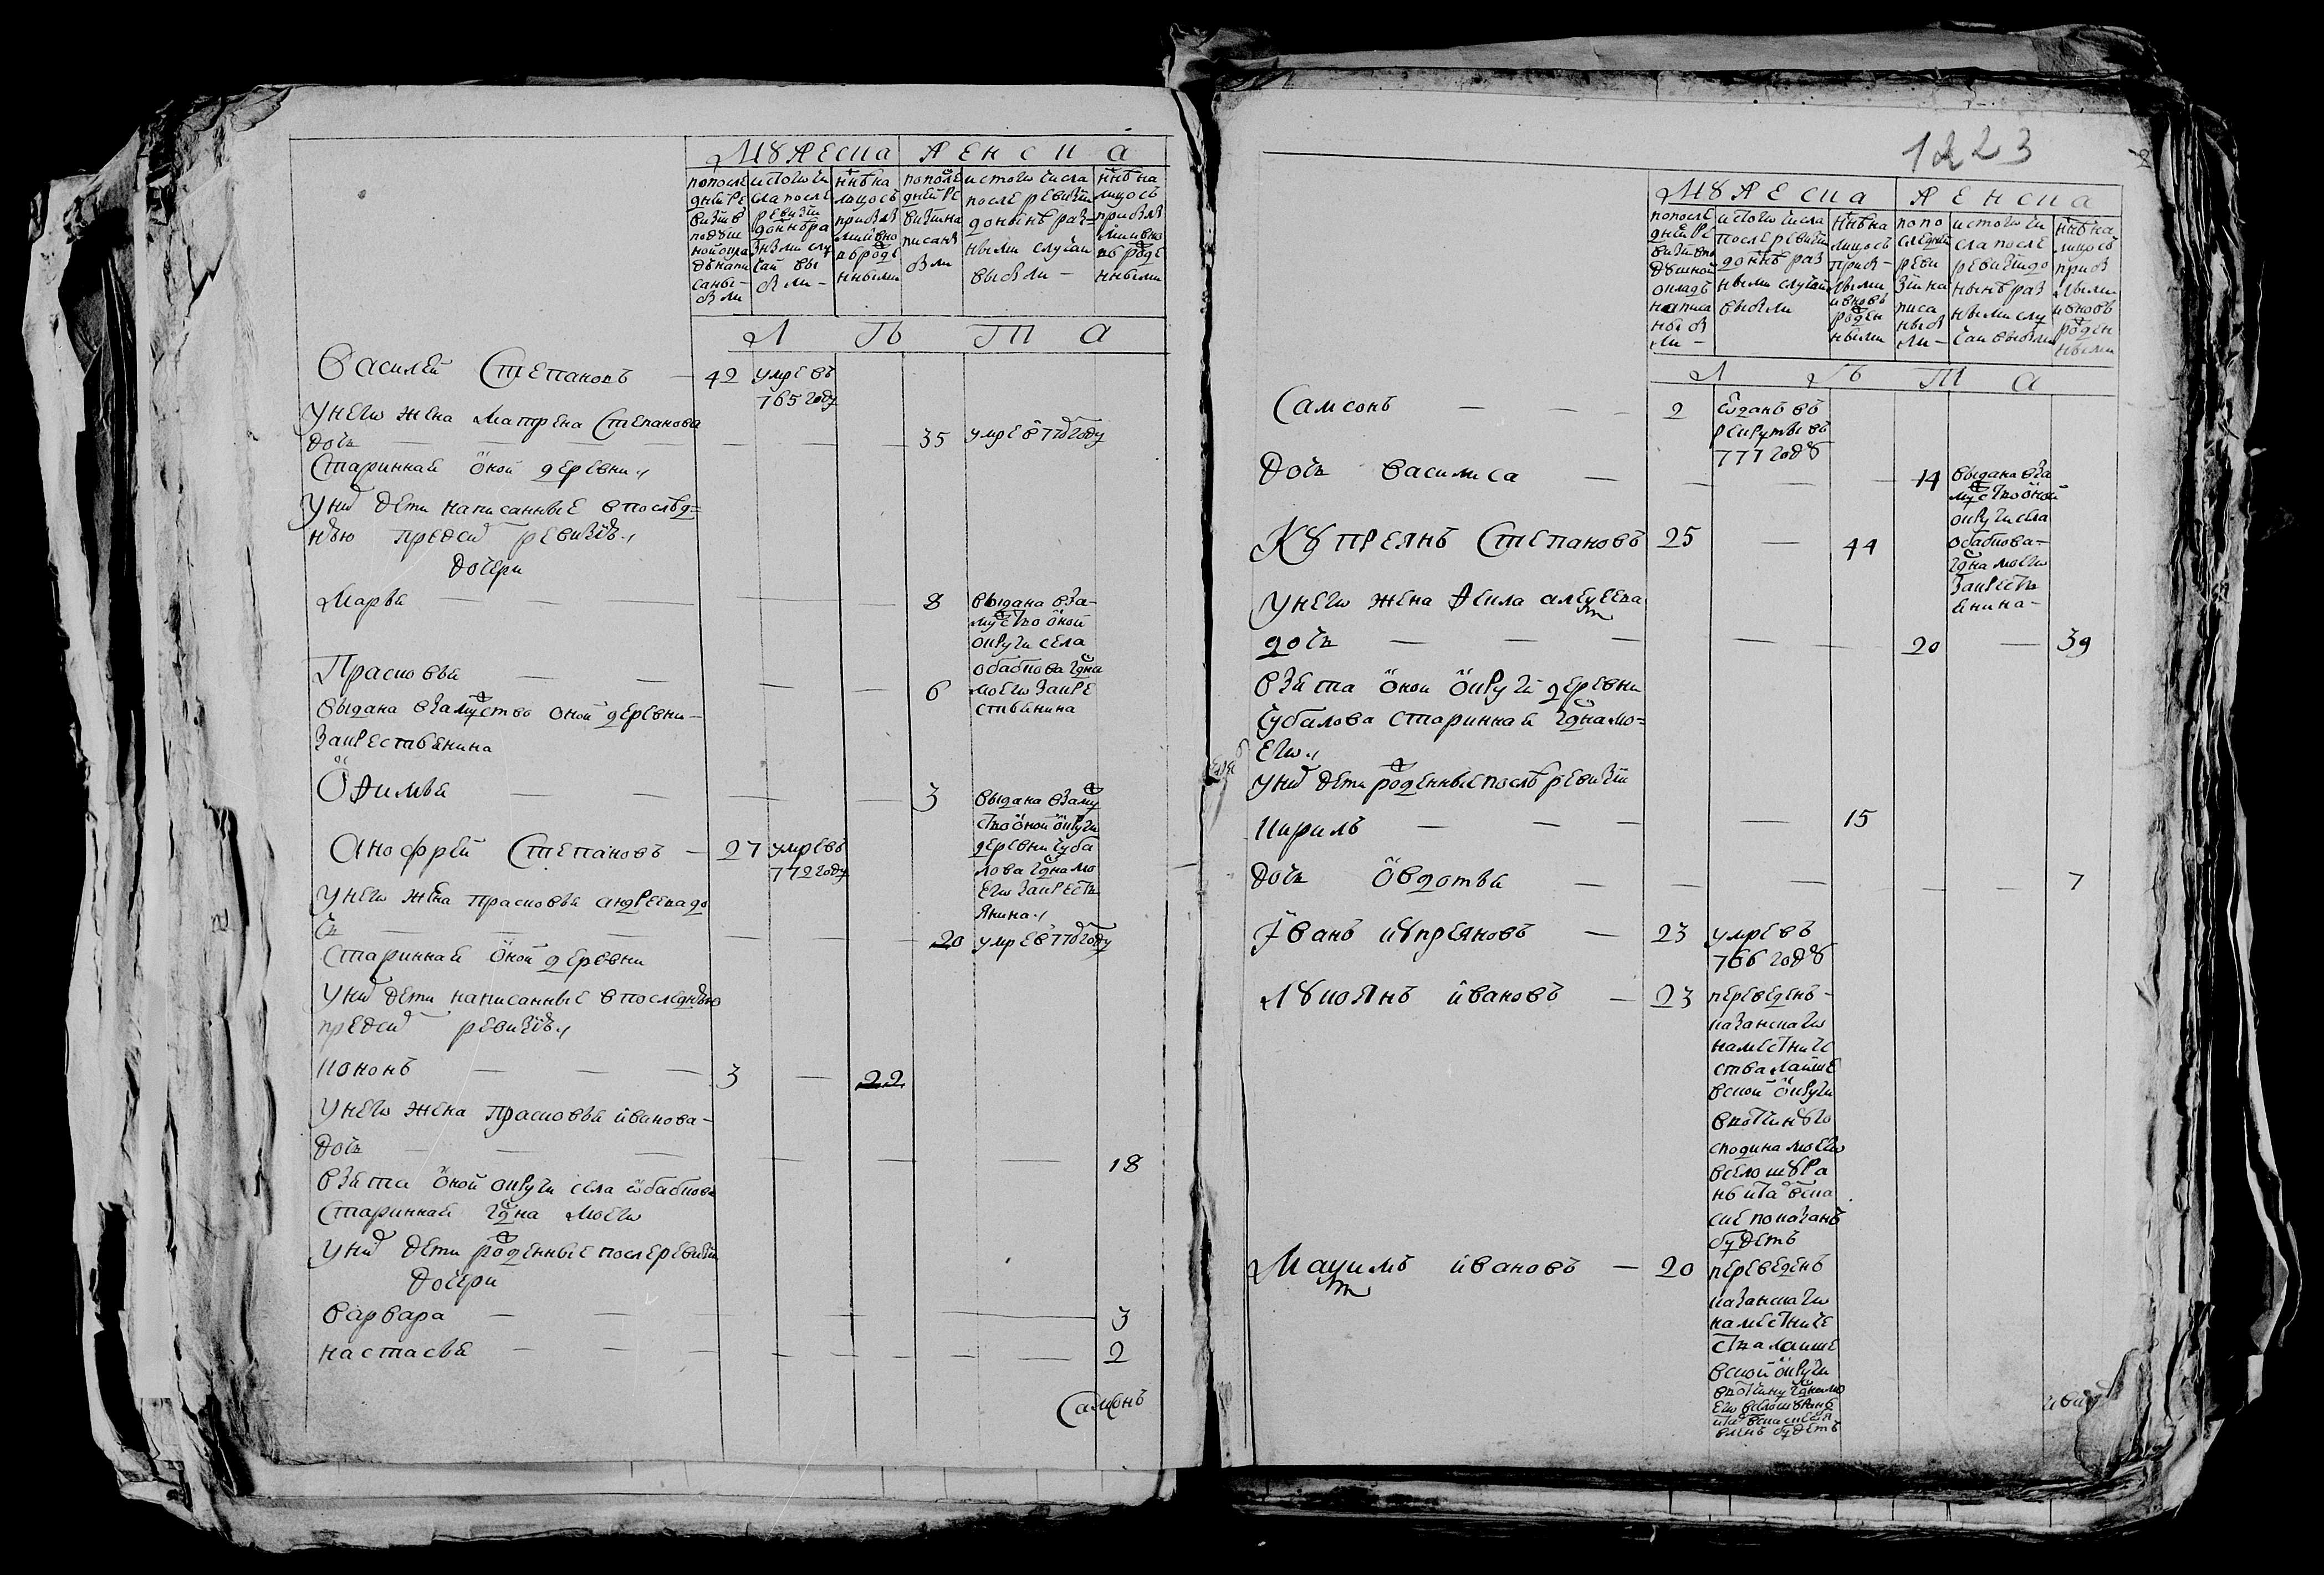 мужеска женска
по после дней ревизии в подушной оклад написаны были
ис того числа после ревизии до ныне разными случаи выбыли
ныне на лицо с прибылыми и вновь рожденными
по последней ревизии написаны были
ис того числа после ревизии до ныне разными случаи выбыли
ныне на лицо с прибылыми и вновь рожденными
Л Ѣ Т А
Василей Степановъ — 42 умре въ
765 году
У него жена Матрена Степанова
дочь — 35 умре в 776 году
Стариннай оной деревни
У них дети написанные в послѣд=
нѣю пред сим ревизїю
дочери
Марѳа — 8 выдана в за-
мужство оной
округи села
Прасковья — 6
моего за кре
стьянина
выдана в замужство оной деревни—
за крестьянина
Офимья — 3 выдана в заму
жство оной округи
деревни Чуба
лова гдна мо
его за кресть
янина
Анофрей Степановъ — 27 умре въ
772 году
У него жена Прасковья Андреева до
чь — 20 умре в 776 году
Стариннай оной деревни
У них дети написанные в последнѣю
пред сим ревизїю
Кононъ — 3 — 22
У него жена Прасковья Иванова—
дочь — 18
Взята оной округи села
Стариннай гдна моего
У них дети рожденные после ревизии
дочери
Варвара — 3
Настасья — 2
Самсонъ
1223
мужеска женска
по последней ревизии в подушной окладъ написаны были
ис того числа после ревизии до ныне разными случаи выбыли
ныне на лицо с прибылыми и вновь рожденными
по последней ревизии написаны были
ис того числа после ревизии до ныне разными случаи выбыли
ныне на лицо с прибылыми и вновь рожденными
Л Ѣ Т А
Самсонъ — 2 отданъ въ
рекруты въ
777 годѹ
Дочь Василиса — 14 выдана в за
мужство оной
округи села
Кѹпреянъ Степановъ 25 — 44
гдна моего
за кресть
янина—
У него жена Ѳекла Алексеева
дочь — 20 — 39
Взята оной округи деревни
Чубалова стариннай гдна мо=
его
У них дети рожденные послѣ ревизии
Кирилъ — 15
дочь Овдотья — 7
Иванъ Кѹпреяновъ — 23 умре въ
766 годѹ
Лѹкоянъ Ивановъ — 23 переведенъ—
Казанскаго
наместниче
ства Лаише
вской округи
в вотчинѹ го
сподина моего
сие показанъ
будетъ
Максимъ Ивановъ — 20 переведенъ
Казанскаго
намесниче
ства Лаише
вской округи
в вотчину гдна мо
его
будетъ